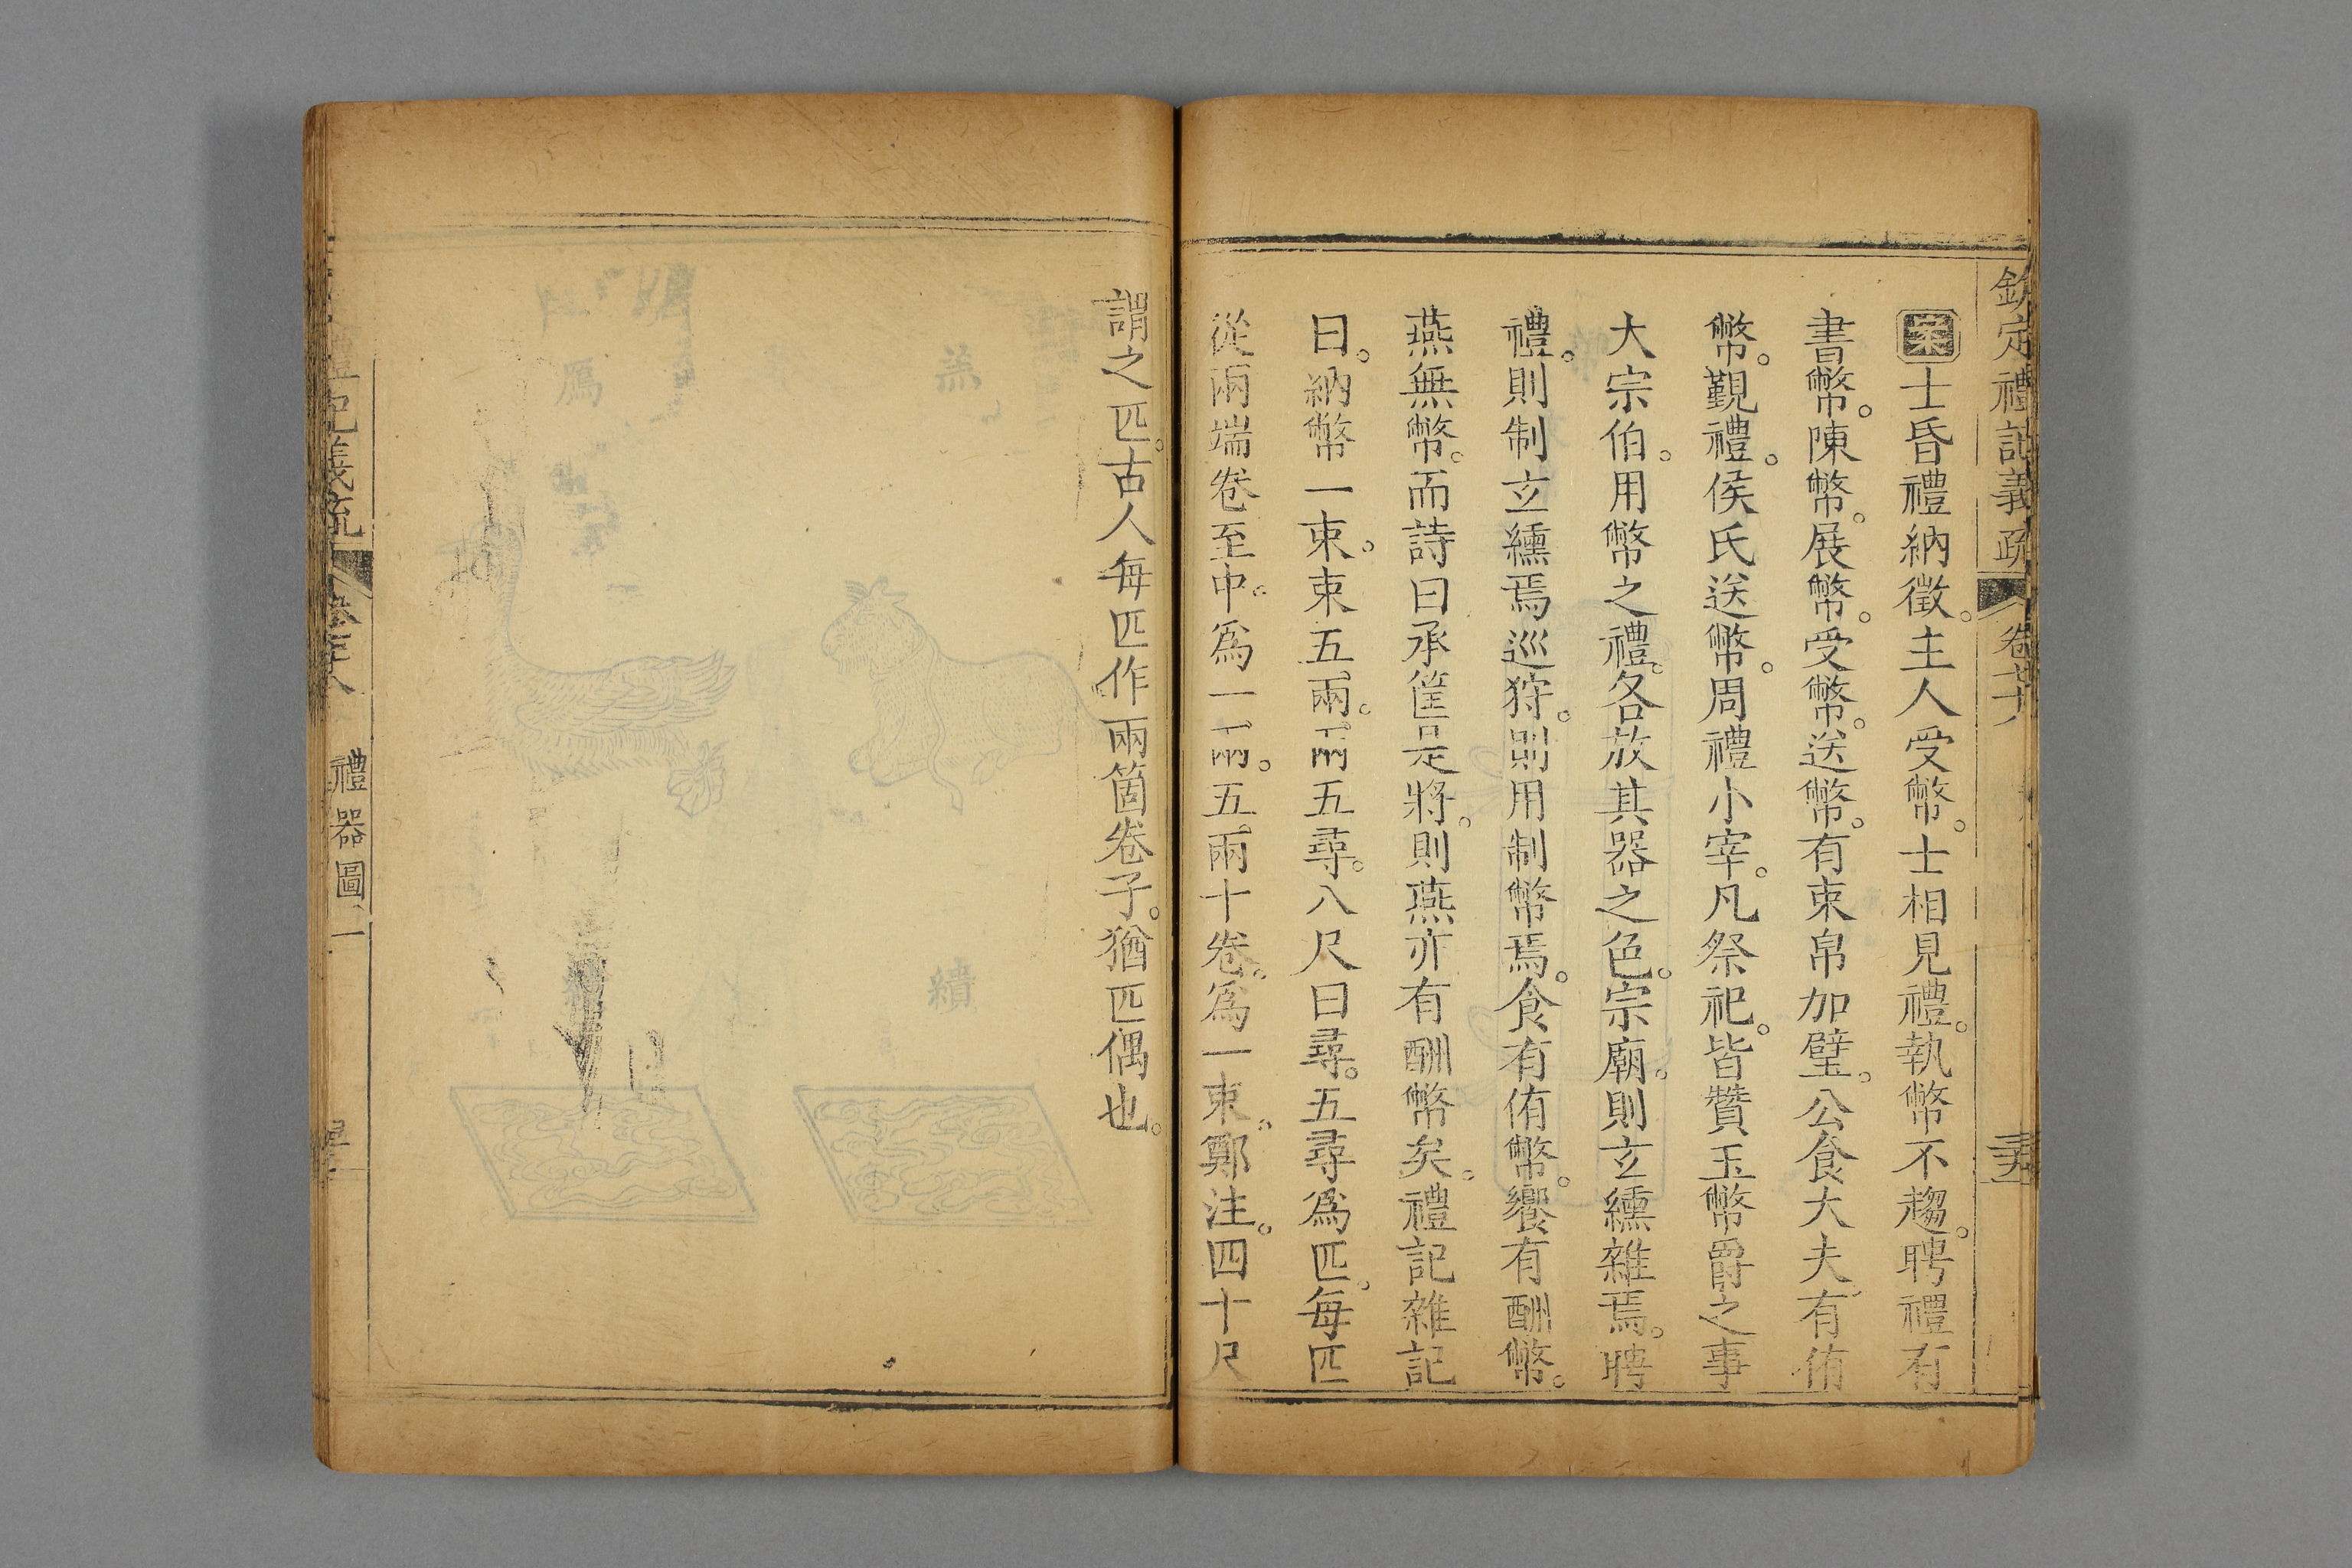 欽定禮記義疏
案士昏禮納徵。主人受幣。士相見禮。執幣不趨。聘禮有
書幣。陳幣。展幣。受幣。送幣。有束帛加璧。公食大夫。有侑
幣。覲禮。侯氏送幣。周禮小宰。凡祭祀。皆贊玉幣爵之事
大宗伯。用幣之禮。各放其器之色。宗廟。則玄纁雜焉。聘
禮。則制玄纁焉巡狩。則用制幣焉。食有侑幣。饗有酬幣。
燕無幣。而詩曰承筐是將。則燕亦有酬幣矣。禮記雜記
曰。納幣一束。束五兩。兩五尋。八尺曰尋。五尋爲匹。每匹
從兩端卷至中。爲一兩。五兩十卷。爲一束。鄭注。四十尺
謂之匹。古人每匹作兩箇卷子。猶匹偶也。
羔
鴈
繢
禮記義疏
禮器圖一